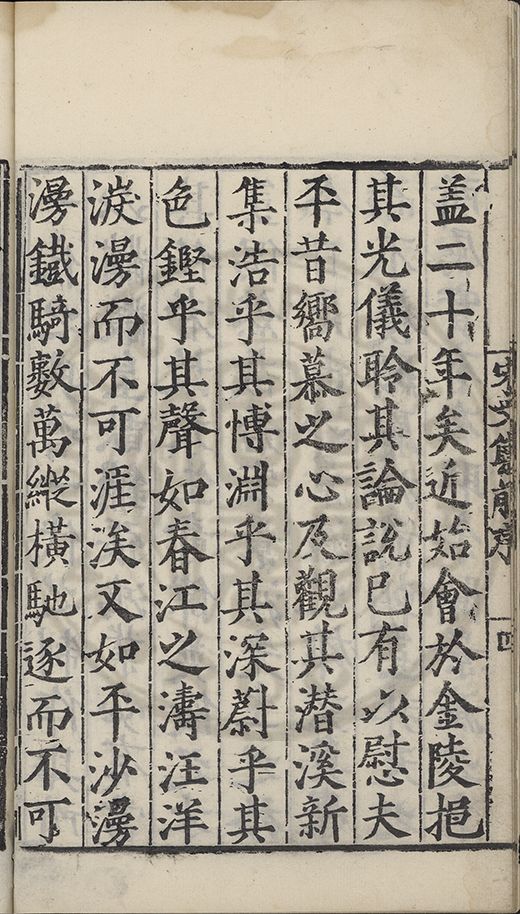 盖二十年矣近始會於金陵挹
其光儀聆其論說已有以慰夫
平昔嚮慕之心及觀其潜溪新
集浩乎其博淵乎其深蔚乎其
色鏗乎其聲如春江之濤汪洋
淡漫而不可涯涘又如平沙漫
漫鐵騎數萬縱橫馳逐而不可
宋文集前序
四